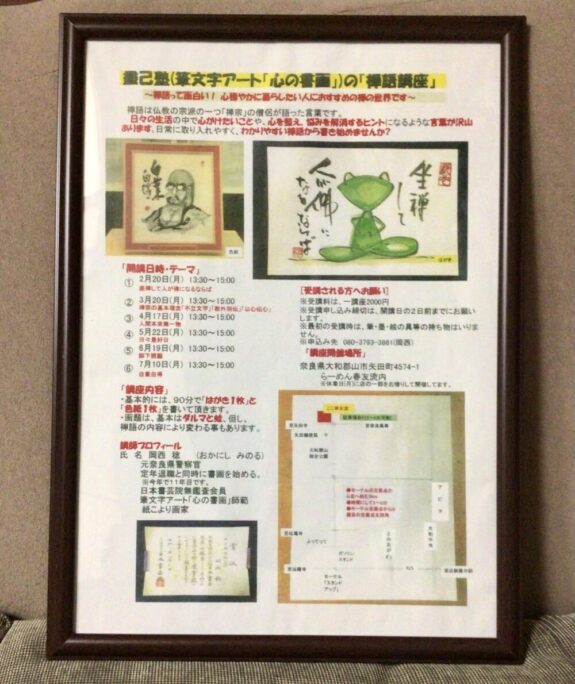 塾(筆文字アート「心の書画」)の「禅語講座」
～禅語って面白い! 心穏やかに暮らしたい人におすすめの禅の世界です～
禅語は仏教の宗派の一つ「禅宗」の僧侶が語った言葉です。
日々の生活の中で心がけたいことや、心を整え、悩みを解消するヒントになるような言葉が沢山
あります。日常に取り入れやすく、わかりやすい禅語から書き始めませんか?
坐禅
して
人が佛に
なるならば
色紙
はがき
「開講日時・テーマ」
① 2月20日(月) 13:30～15:00
座禅して人が佛になるならば
② 3月20日(月) 13:30～15:00
禅宗の基本理念「不立文字」「教外別伝」「以心伝心」
③ 4月17日(月) 13:30～15:00
人間本来無一物
④ 5月22日(月) 13:30～15:00
日々是好日
⑤ 6月19日(月) 13:30～15:00
脚下照顧
⑥ 7月10日(月) 13:30～15:00
[受講される方へお願い]
※受講料は、一講座2000円
※受講申し込み締切は、開講日の2日前までにお願い
します。
※最初の受講時は、筆・墨・絵の具等の持ち物はいりま
せん。
※申込み先 080-3793-3881(岡西)
「講座開催場所」
奈良県大和郡山市矢田町4574-1
らーめん春友流内
※休業日(月)に店の一部をお借りして開催してます。
「講座内容」
・基本的には、90分で「はがき1枚」と
「色紙1枚」を書いて頂きます。
・画題は、基本はダルマと蛙、但し、
禅語の内容により変わる事もあります。
講師プロフィール
氏 名 岡西 稔 (おかにし みのる)
元奈良県警察官
定年退職と同時に書画を始める。
※今年で11年目です。
日本書芸院無鑑査会員
筆文字アート「心の書画」師範
紙こより画家
賞状
ガソリン
スタンド
モーテル
「スタンド
アップ」